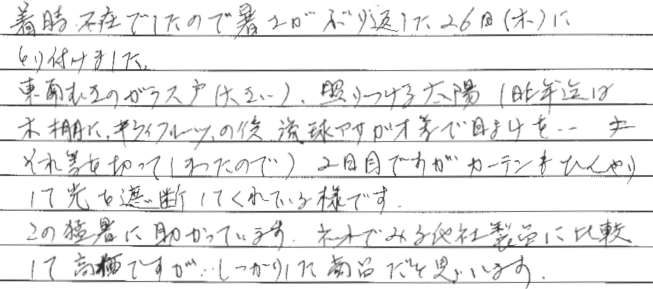 着時不在でしたので暑さがぶり返した26日(木)に
とり付けました。
東南むきのガラス戸(大きい)、照りつける太陽(昨年迄は
木棚に、キウイフルーツ、の後 琉球アサガオ等で日よけを‥
それ等を切ってしまったので) 2日目ですがカーテンもひんやり
して光も遮断してくれている様です。
この猛暑に助かっています。ネットでみる他社製品に比較
して高価ですが‥しっかりした商品だと思います。